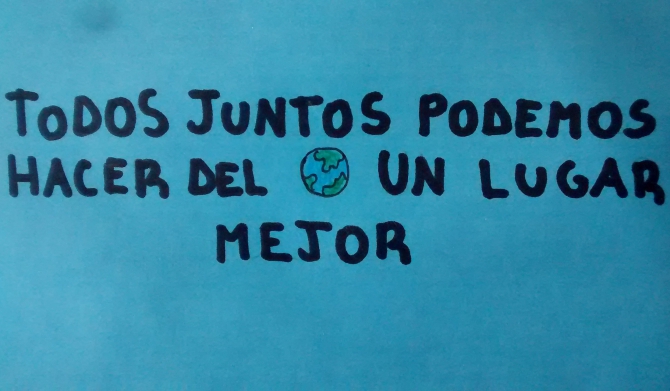 TODOS JUNTOS PODEMOS
HACER DEL UN LUGAR
MEJOR